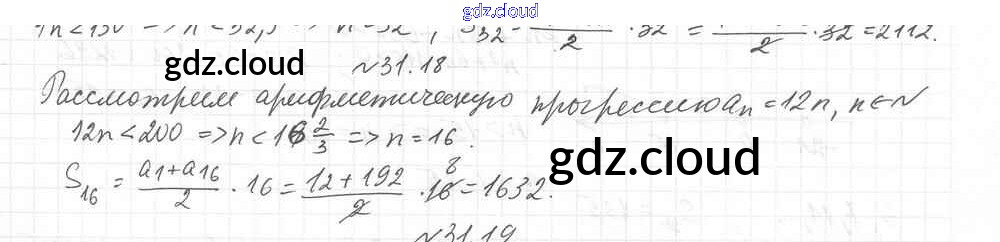 gdz.cloud
4n<130 => n<32,5 => n=32, S₃₂= /2 ·32 = /2 ·32=2112.
gdz.cloud
№31.18
Рассмотрим арифметическую прогрессию aₙ=12n, n∈N
12n<200 =>n<16 2/3 => n=16.
gdz.cloud
S₁₆ = (a₁+a₁₆)/2 · 16 = (12+192)/2 · 16 8 = 1632.
№31.19